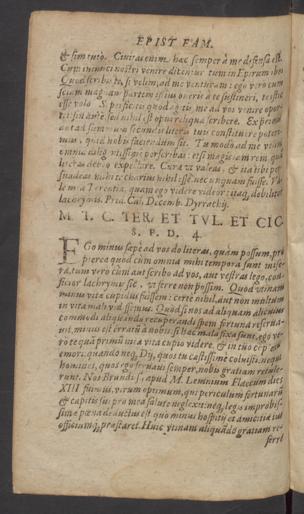 EPIST. FAM.
& simento. Civitas enim hac semper à me defensa est.
Cum inimici nostri venire dicentur, tum in Epirum ibo.
Quod scribis te, si velim, ad me venturam: ego vero cum
sciam magnam partem istius oneris abs te sustineri, te istic
esse volo. Si perficitis quod agitis, me ad vos venire opor-
tet: sin autem sed nihil est opus reliqua scribere. Ex primis
aut ad summum secundis literis tuis constituere pote-
mus, quid nobis faciendum sit. Tu modo ad me velim
omnia diligentissime perscribas: etsi magis iam rem, quàm
literas debeo expectare. Cura ut valeas, & ita tibi per-
suadeas, mihi te charius nihil esse, nec unquam fuisse. Va-
le mea Terentia, quam ego videre videor: itaq; debilitor
lacrymis. Pred. Cal. Decemb. Dyrrachij.
M. T. C. TER. ET TVL. ET CIC.
S. P. D. 4.
EGo minus sæpe ad vos do literas, quàm possum, pro
pterea quod cùm omnia mihi tempora sunt mise-
ra, tum vero cùm aut scribo ad vos, aut vestras lego, con-
ficior lacrymis sic, ut ferre non possim. Quod utinam
minus vitæ cupidus fuissem: certe nihil, aut non multum
in vita mali vidissemus. Quod si nos ad aliquam alicuius
commodi aliquando recuperandi spem fortuna reserva-
vit, minus est erratum à nobis: si hæc mala fixa sunt, ego ve-
ro te quàm primum mea vita cupio videre, & in tuo cõplexu
emori: quando neq; Dij, quos tu castissimè coluisti, neque
homines, quibus ego servavi semper, nobis gratiam retule-
runt. Nos Brundisij apud M. Lemnium Flaccum dies
XIII fuimus, virum optimum, qui periculum fortunarũ
& capitis sui pro mea salute neglexit: neq; legis improbis-
simæ pœna deductus est quo minus hospitij et amicitiæ ius
officiumq; præstaret. Huic utinam aliquãdo gratiam re-
ferre